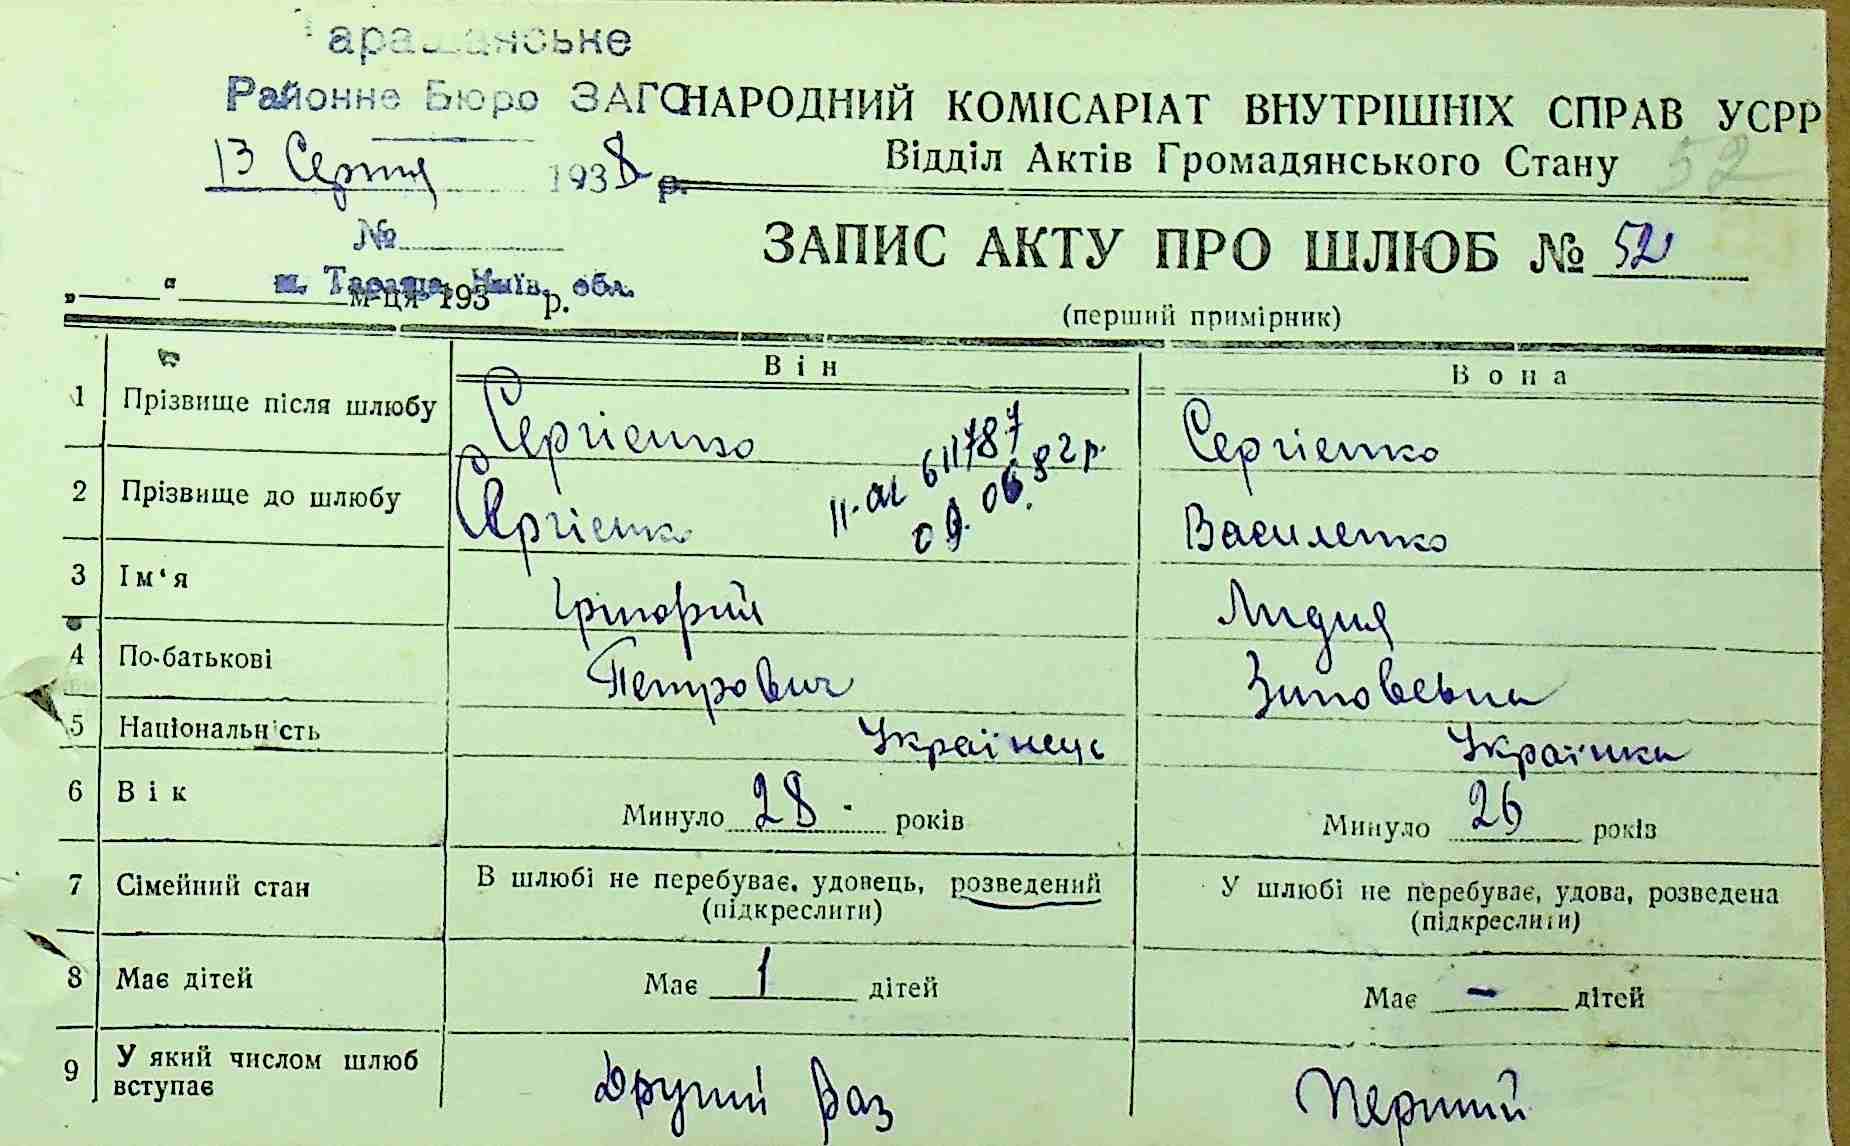 Таращанське
Районне Бюро ЗАГС
13 Серпня 1938 р.
№
м. Тараща, Київ. обл.
„ “ м-ця 193 р.
НАРОДНИЙ КОМІСАРІАТ ВНУТРІШНІХ СПРАВ УСРР
Відділ Актів Громадянського Стану
52
ЗАПИС АКТУ ПРО ШЛЮБ № 52
(перший примірник)
Він Вона
1 Прізвище після шлюбу Сергієнко Сергієнко
2 Прізвище до шлюбу Сергієнко Василенко
611787
3 Ім'я Григорій Лидия
4 По-батькові Петрович Зиновевна
5 Національність Українець Українка
6 Вік Минуло 28 років Минуло 26 років
7 Сімейний стан В шлюбі не перебуває, удовець, розведений У шлюбі не перебуває, удова, розведена
(підкреслити) (підкреслити)
8 Має дітей Має 1 дітей Має - дітей
9 У який числом шлюб вступає Другий Раз Перший